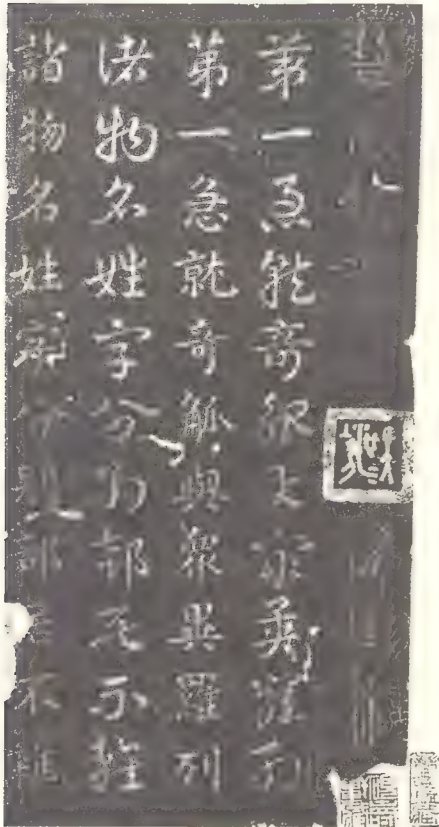 第一急就奇觚與衆異羅列
第一急就奇觚與衆異羅列
諸物名姓字分別部居不雜
諸物名姓字分別部居不雜